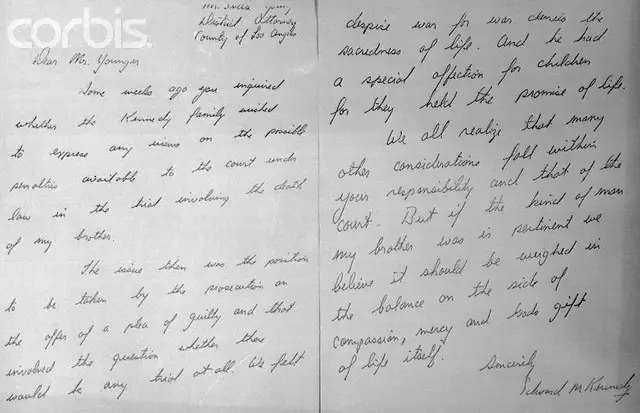 corbis.
Mr. Evelle Younger
District Attorney
County of Los Angeles
Dear Mr. Younger
Some weeks ago you inquired
whether the Kennedy family wished
to express any views on the possible
penalties available to the court under
law in the trial involving the death
of my brother.
The issue then was the position
to be taken by the prosecution on
the offer of a plea of guilty and that
involved the question whether there
would be any trial at all. We felt
despise war for war denies the
sacredness of life. And he had
a special affection for children
for they held the promise of life.
We all realize that many
other considerations fall within
your responsibility and that of the
court. But if the kind of man
my brother was is pertinent we
believe it should be weighed in
the balance on the side of
compassion, mercy and Gods gift
of life itself.
Sincerely
Edward M Kennedy